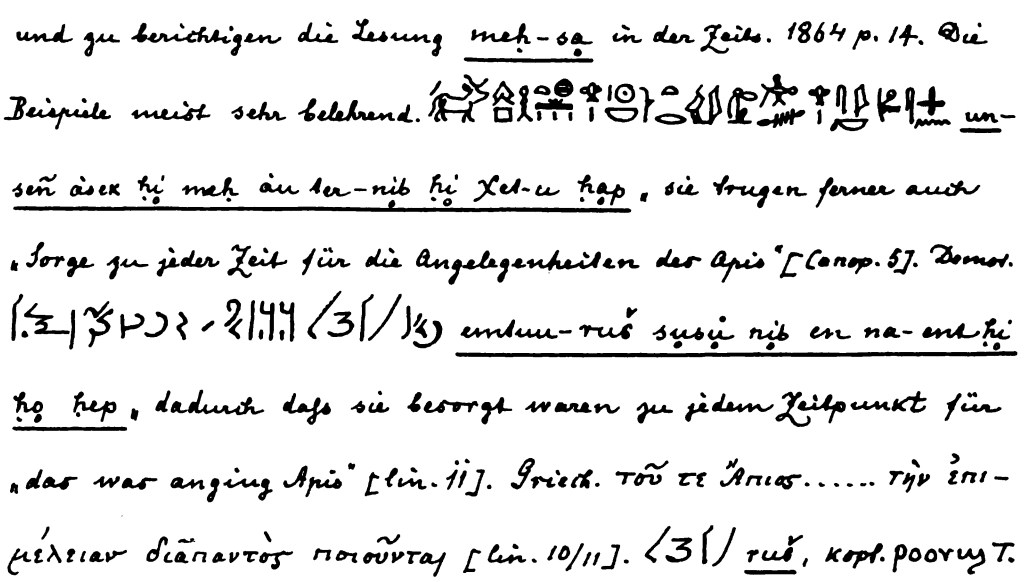 und zu berichtigen die Lesung meḥ-sạ in der Zeits. 1864 p. 14. Die
Beispiele meist sehr belehrend. un-
señ àsek ḥị meḥ àu ter-nịb ḥị χet-u ḥạp „ sie trugen ferner auch
„Sorge zu jeder Zeit für die Angelegenheiten des Apis“ [Canop. 5]. Demot.
emtuu-ruš sụsụ̀ nịb en na-ent ḥị
ḥọ ḥep „ dadurch daſs sie besorgt waren zu jedem Zeitpunkt für
„das was anging Apis“ [lin. 11]. Griech. τοῦ τε Ἄπιος...... τὴν ἐπι-
μέλειαν διᾶπαντὸς ποιοῦνται [lin. 10/11]. ruš, kopt. ⲣⲟⲟⲩϣ T.